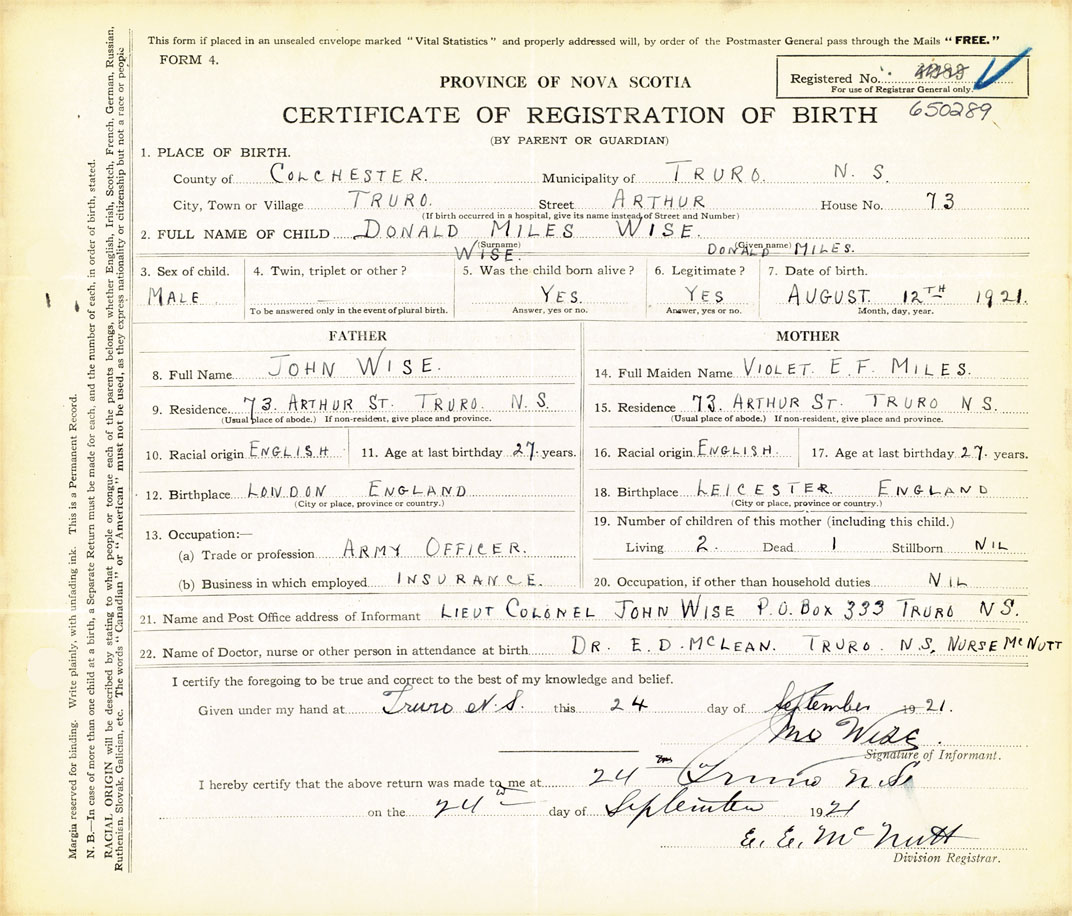 This form if placed in an unsealed envelope marked "Vital Statistics" and properly addressed will, by order of the Postmaster General pass through the Mails "FREE."
FORM 4.
Registered No.
For use of Registrar General only.
650289
PROVINCE OF NOVA SCOTIA
CERTIFICATE OF REGISTRATION OF BIRTH
(BY PARENT OR GUARDIAN)
1. PLACE OF BIRTH.
County of COLCHESTER. Municipality of TRURO. N. S.
City, Town or Village TRURO. Street ARTHUR House No. 73
(If birth occurred in a hospital, give its name instead of Street and Number)
2. FULL NAME OF CHILD DONALD MILES WISE.
(Surname) (Given name)
WISE. DONALD MILES.
3. Sex of child. 4. Twin, triplet or other? 5. Was the child born alive? 6. Legitimate? 7. Date of birth.
MALE YES. YES AUGUST. 12TH 1921.
To be answered only in the event of plural birth. Answer, yes or no. Answer, yes or no. Month, day, year.
FATHER
8. Full Name JOHN WISE.
9. Residence 73. ARTHUR ST. TRURO. N. S.
(Usual place of abode.) If non-resident, give place and province.
10. Racial origin ENGLISH 11. Age at last birthday 27. years.
12. Birthplace LONDON ENGLAND
(City or place, province or country.)
13. Occupation:—
(a) Trade or profession ARMY OFFICER.
(b) Business in which employed INSURANCE.
MOTHER
14. Full Maiden Name VIOLET E. F. MILES.
15. Residence 73. ARTHUR ST. TRURO N S.
(Usual place of abode.) If non-resident, give place and province.
16. Racial origin ENGLISH. 17. Age at last birthday 27. years.
18. Birthplace LEICESTER. ENGLAND
(City or place, province or country.)
19. Number of children of this mother (including this child.)
Living 2. Dead 1 Stillborn NIL
20. Occupation, if other than household duties NIL
21. Name and Post Office address of Informant LIEUT COLONEL JOHN WISE P.O. BOX 333 TRURO N S.
22. Name of Doctor, nurse or other person in attendance at birth DR. E. D. MCLEAN. TRURO. N. S. NURSE MCNUTT
I certify the foregoing to be true and correct to the best of my knowledge and belief.
Given under my hand at Truro N. S. this 24 day of September 1921.
Jno Wise.
Signature of Informant.
I hereby certify that the above return was made to me at 24 Truro N. S.
on the 24 day of September 1921
E. E. McNutt
Division Registrar.
Margin reserved for binding. Write plainly, with unfading ink. This is a Permanent Record.
N. B.—In case of more than one child at a birth, a Separate Return must be made for each, and the number of each, in order of birth, stated.
RACIAL ORIGIN will be described by stating to what people or tongue each of the parents belongs, whether English, Irish, Scotch, French, German, Russian,
Ruthenian, Slovak, Galician, etc. The words "Canadian" or "American" must not be used, as they express nationality or citizenship but not a race or people